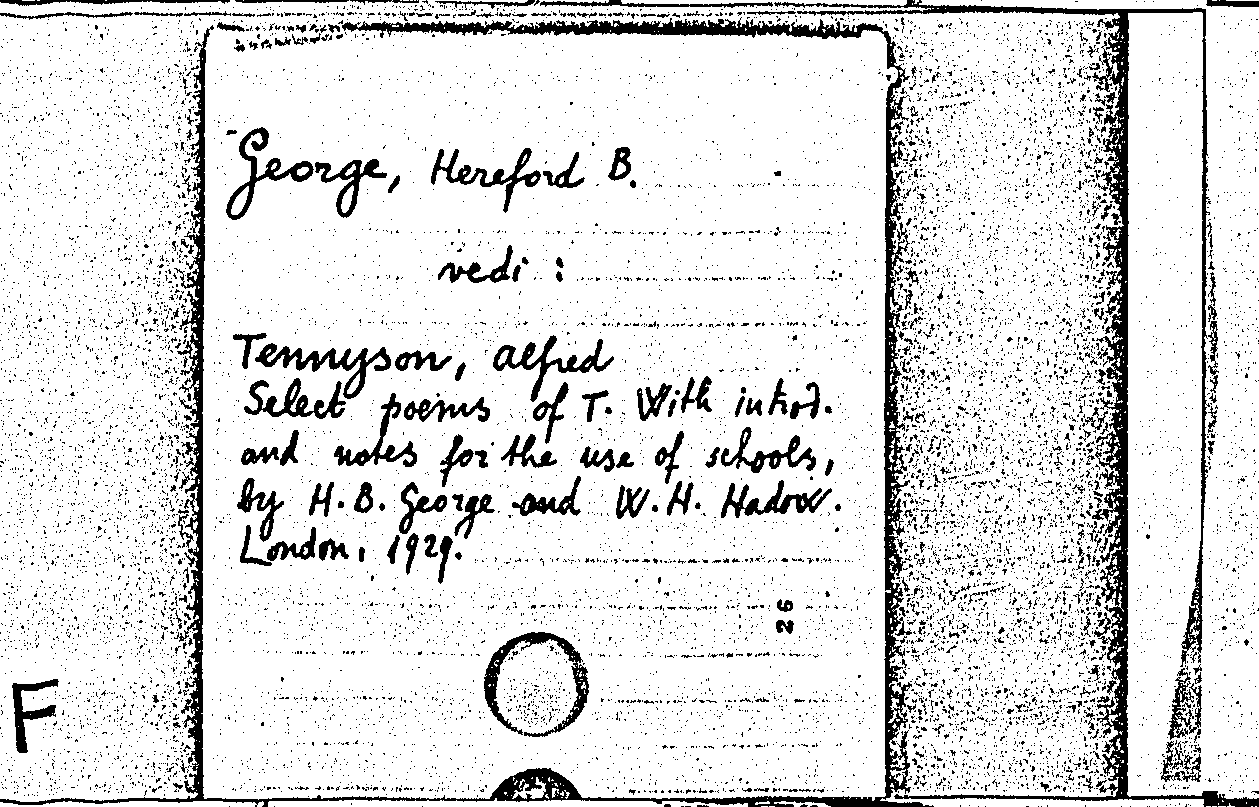 George, Hereford B.
vedi :
Tennyson, Alfred
Select poems of T. With introd.
and notes for the use of schools,
by H. B. George and W. H. Hadow.
London, 1929.
26
F